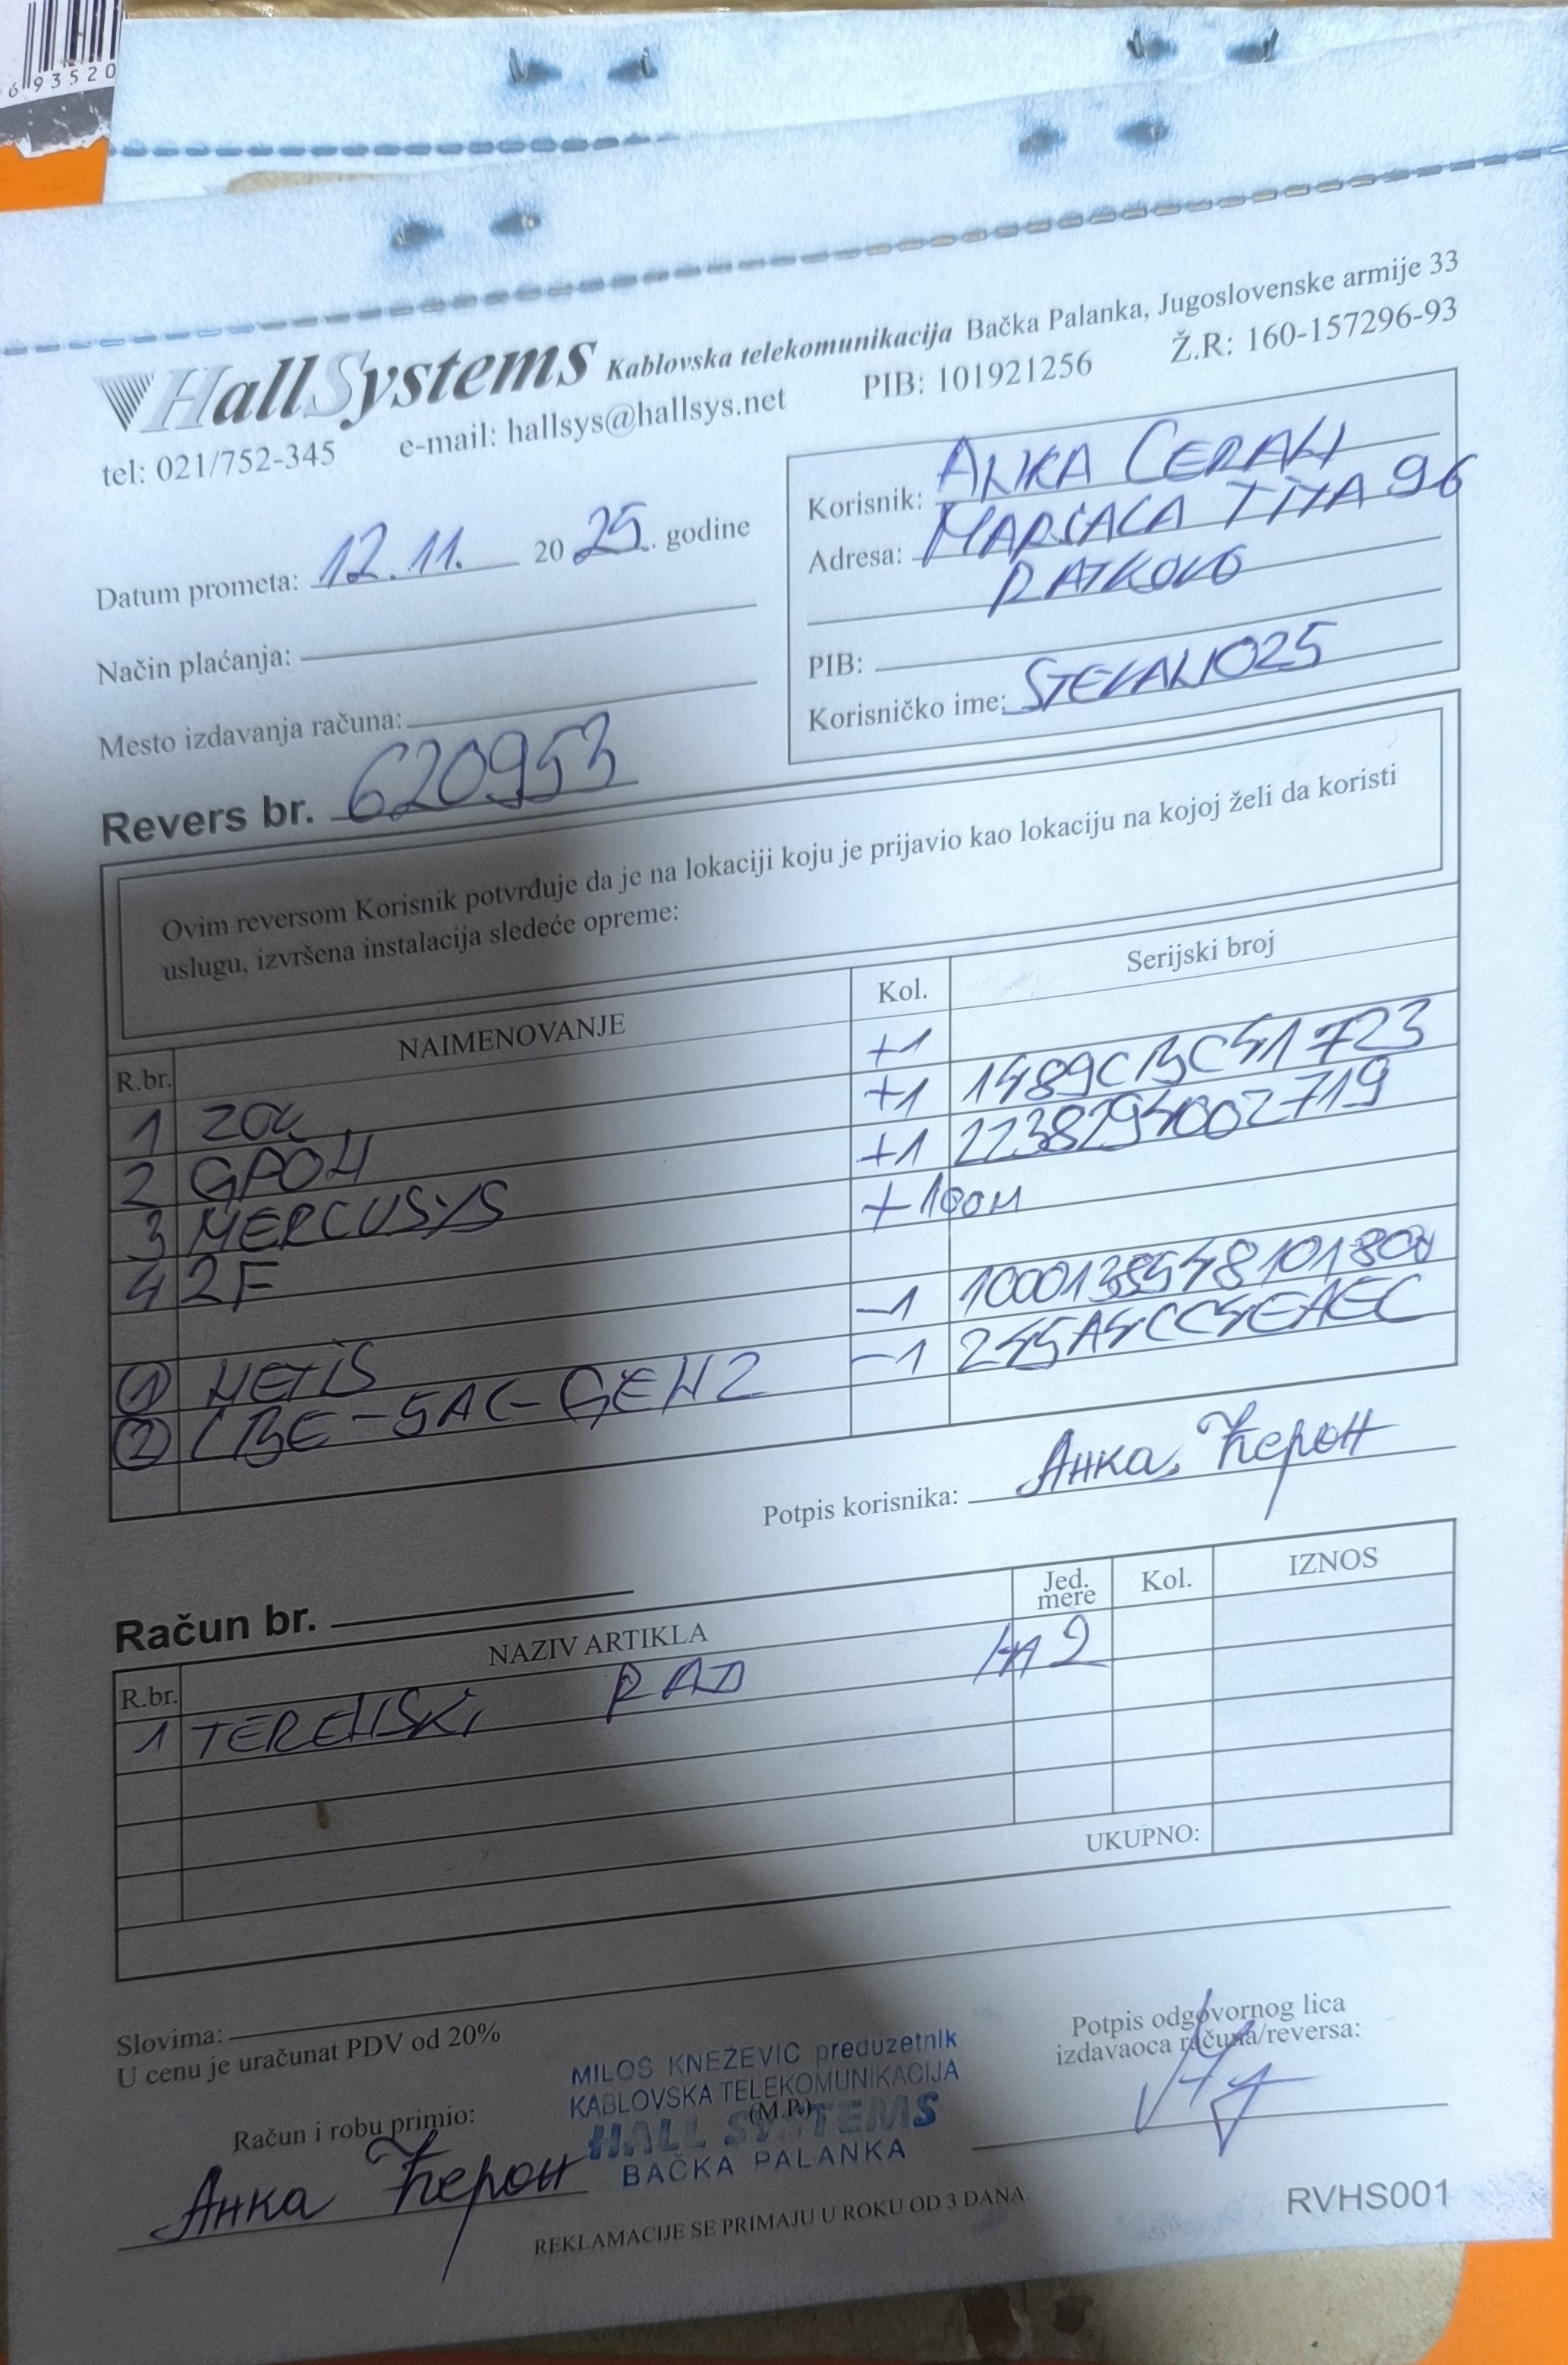 6 93520
HallSystems Kablovska telekomunikacija Bačka Palanka, Jugoslovenske armije 33
tel: 021/752-345 e-mail: hallsys@hallsys.net PIB: 101921256 Ž.R: 160-157296-93
Datum prometa: 12.11. 2025. godine
Način plaćanja:
Mesto izdavanja računa:
Korisnik: ANKA ĆERAN
Adresa: MARŠALA TITA 96
RATKOVO
PIB:
Korisničko ime: STEVAN1025
Revers br. 620953
Ovim reversom Korisnik potvrđuje da je na lokaciji koju je prijavio kao lokaciju na kojoj želi da koristi
uslugu, izvršena instalacija sledeće opreme:
R.br. NAIMENOVANJE Kol. Serijski broj
1 ZOK +1
2 GPON +1 1489CBC41723
3 MERCUSYS +1 2238294002719
4 2F +100M
1 NETIS -1
2 LBE-5AC-GEN2 -1 245A4CC4EAEC
Potpis korisnika: Анка Ћерон
Račun br.
R.br. NAZIV ARTIKLA Jed. mere Kol. IZNOS
1 TERENSKI RAD
UKUPNO:
Slovima:
U cenu je uračunat PDV od 20%
Račun i robu primio:
Анка Ћерон
MILOŠ KNEŽEVIĆ preduzetnik
KABLOVSKA TELEKOMUNIKACIJA
(M.P.)
HALL SYSTEMS
BAČKA PALANKA
Potpis odgovornog lica
izdavaoca računa/reversa:
REKLAMACIJE SE PRIMAJU U ROKU OD 3 DANA.
RVHS001